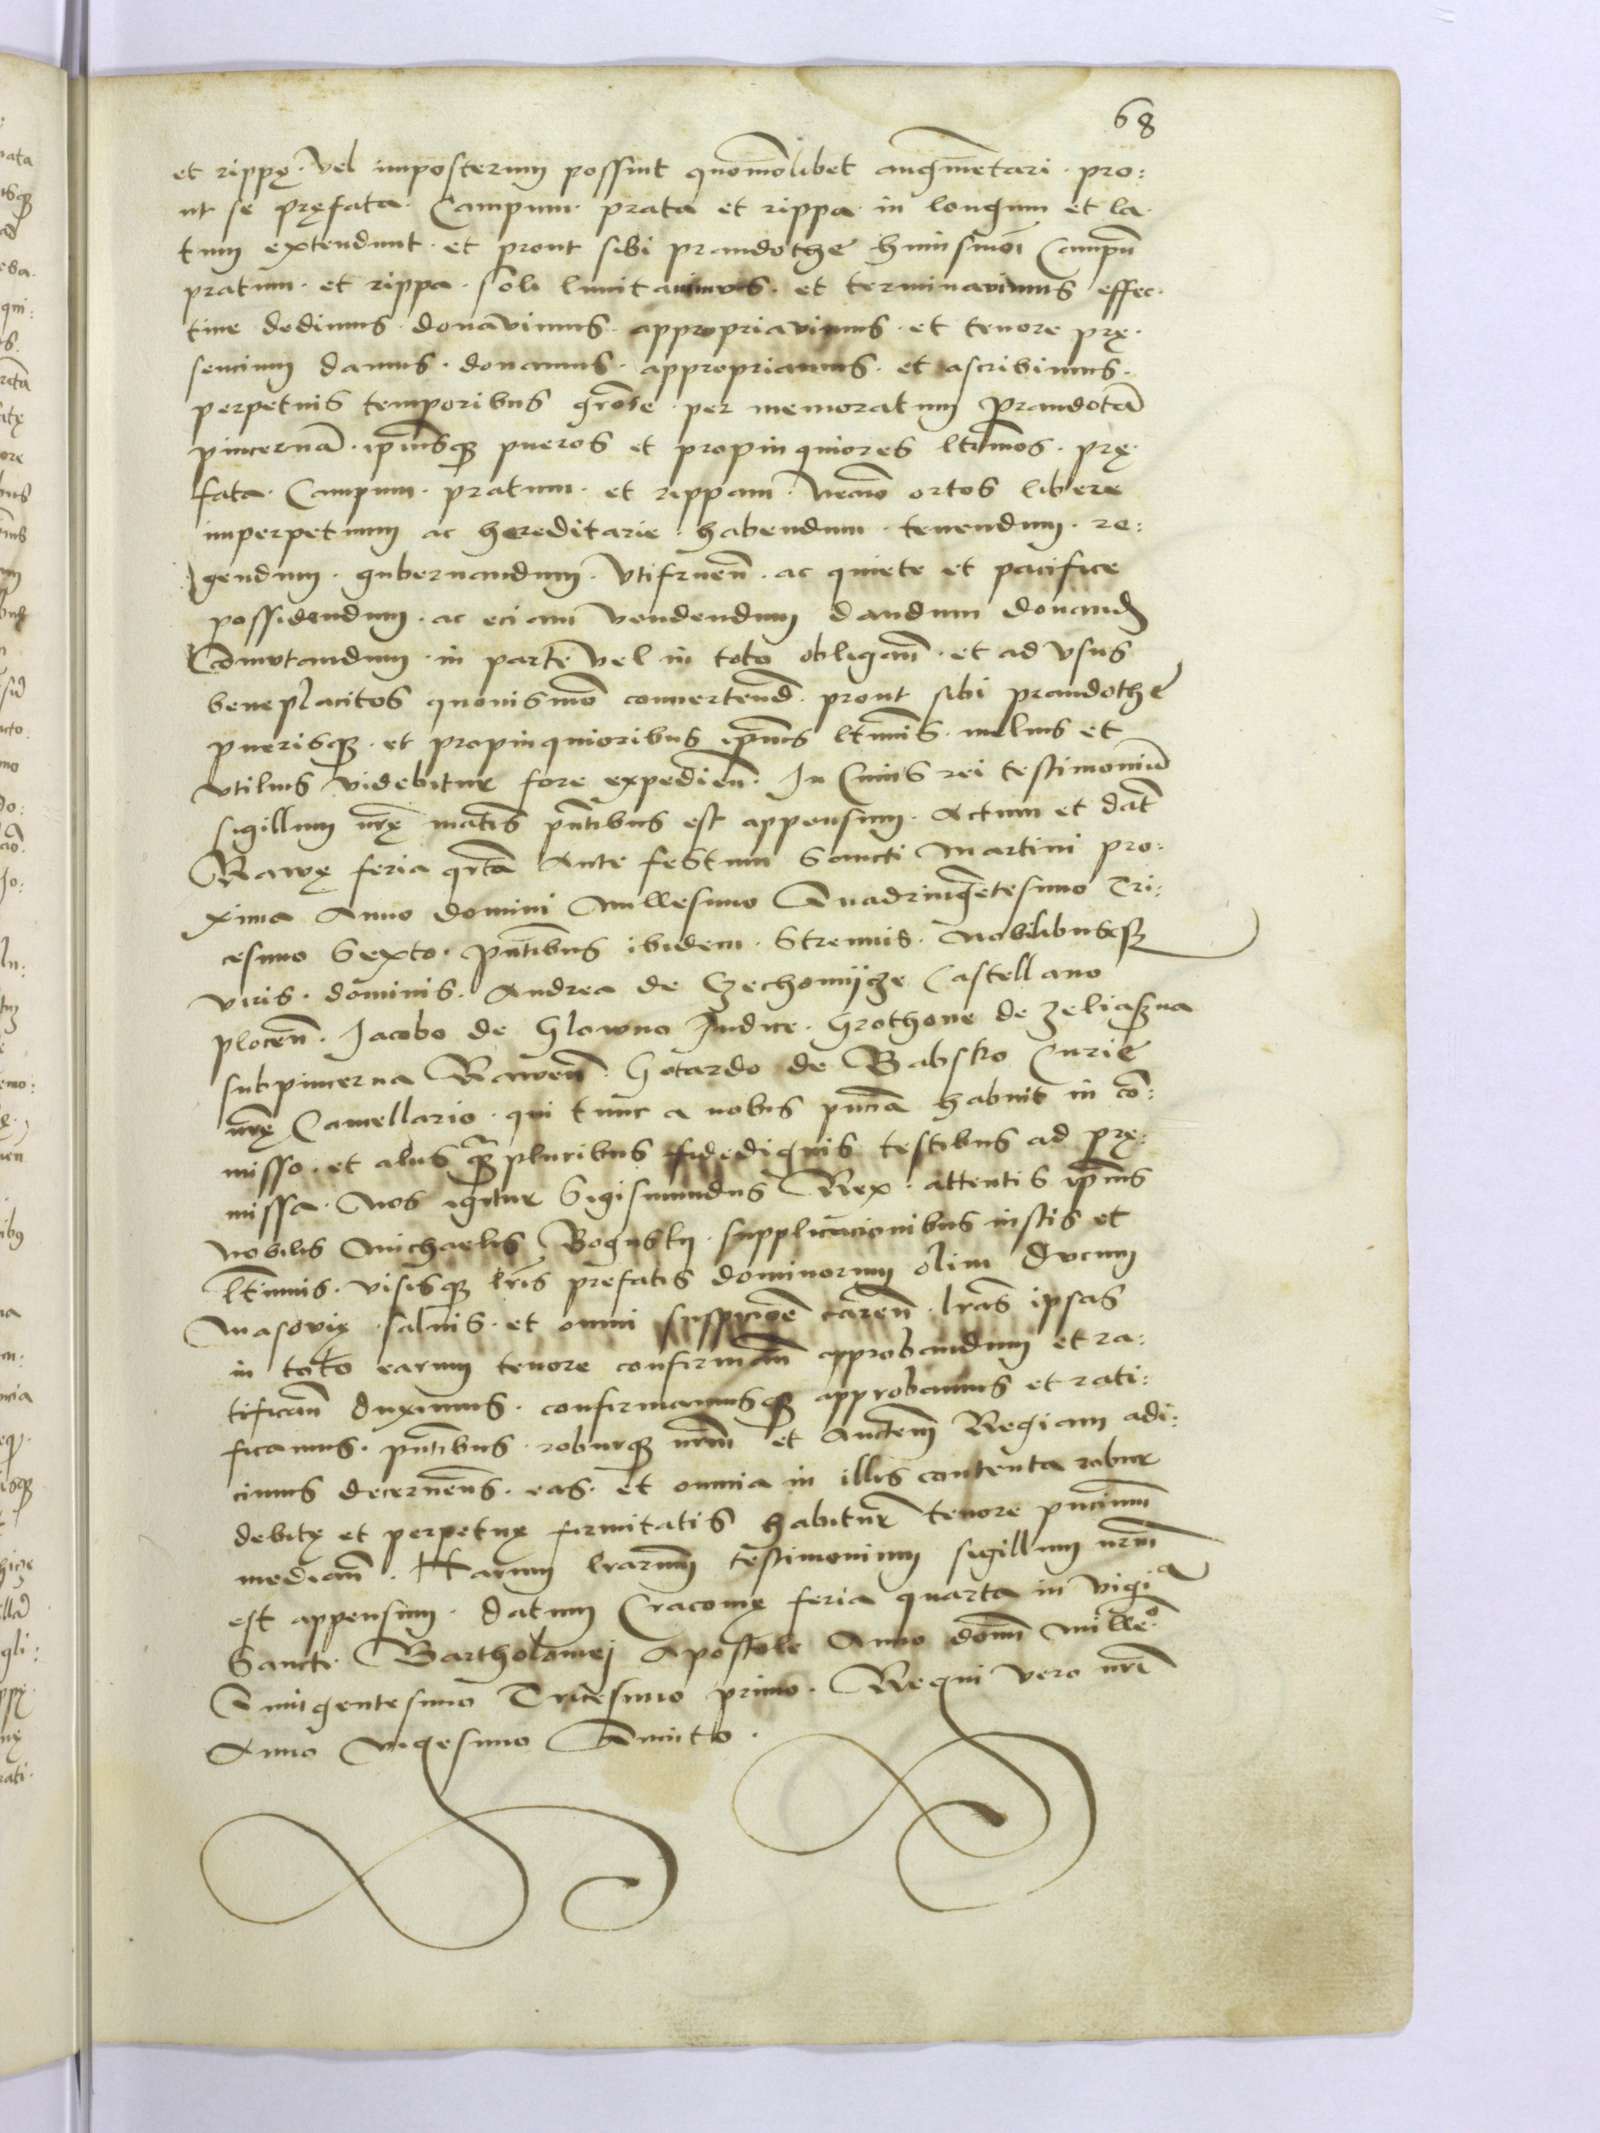 68
et rippę. vel imposterum possint quomolibet augmētari. pro:
ut se pręfata. Campum. prata et rippa. in longum et la.
tum extendunt. et prout sibi prandothe huiusmōi Campū
pratum. et rippa. soli limitavimus. et terminavimus effec.
tive dedimus. donavimus. appropriavimus. et tenore prę.
sencium damus. donamus. appropriamus. et ascribimus.
perpetuis temporibus gr̄ose. per memoratum Prandotā
pincernā. ip̄iusq3 pueros et propinquiores ltīmos. prę.
fata. Campum. pratum. et rippam. necnō ortos libere
imperpetuum ac hereditarie. habendum. tenendum. re:
gendum. gubernandum. utifruen̄. ac quiete et pacifice
possidendum. ac eciam vendendum dandum donand
Comutandum. in parte vel in toto obligan̄. et ad usus
beneplacitos quouismō convertend. prout sibi prandothe
puerisq3. et propinquioribus ip̄ius ltīmis. melius et
utilius videbitur fore expedien̄. In Cuius rei testimoniū
sigillum nr̄ę matis pn̄tibus est appensum. Actum et dat̄
Rawę feria qr̄ta Ante festum Sancti Martini pro:
xima Anno domini Millesimo Quadringētesimo Tri:
cesimo Sexto. pn̄tibus ibidem. Strenuis. Nobilibusq3
viris. dominis. Andrea de Czechomijcze Castellano
plocen̄. Jacobo de Glowno Judice. Grothone de Zeliazna
subpincerna Rawen̄. Gotardo de Babsko Curię
nr̄ę Cancellario. qui tunc a nobis pn̄cia habuit in cō:
misso. et aliis q̄3 pluribus fidedignis testibus ad prę:
missa. Nos igitur Sigismundus Rex. attentis ip̄ius
nobilis Michaelis Bogusky. supplicacionibus iustis et
ltīmis. visisq3 lr̄is prefatis dominorum olim Ducum
Masovię. salvis. et omni suspicioē caren̄. lr̄as ipsas
in toto earum tenore confirman̄ approbandum et ra:
tifican̄ duximus. confirmamusq3 approbamus et rati:
ficamus. pn̄tibus. roburq3 nr̄um et Auctem̄ Regiam adi:
cimus decernen̄s. eas. et omnia in illis contenta robur
debitę et perpetuę firmitatis habitur̄ tenore pn̄cium
median̄. Harum lr̄arum testimonium sigillum nr̄um
est appensum. Datum Cracovię feria quarta in vigiᵃ
Sancti Bartholomej Apostoli Anno domī Milleᵒ
Quingentesimo Tricesimo primo. Regni vero nr̄i
Anno vigesimo Quinto.